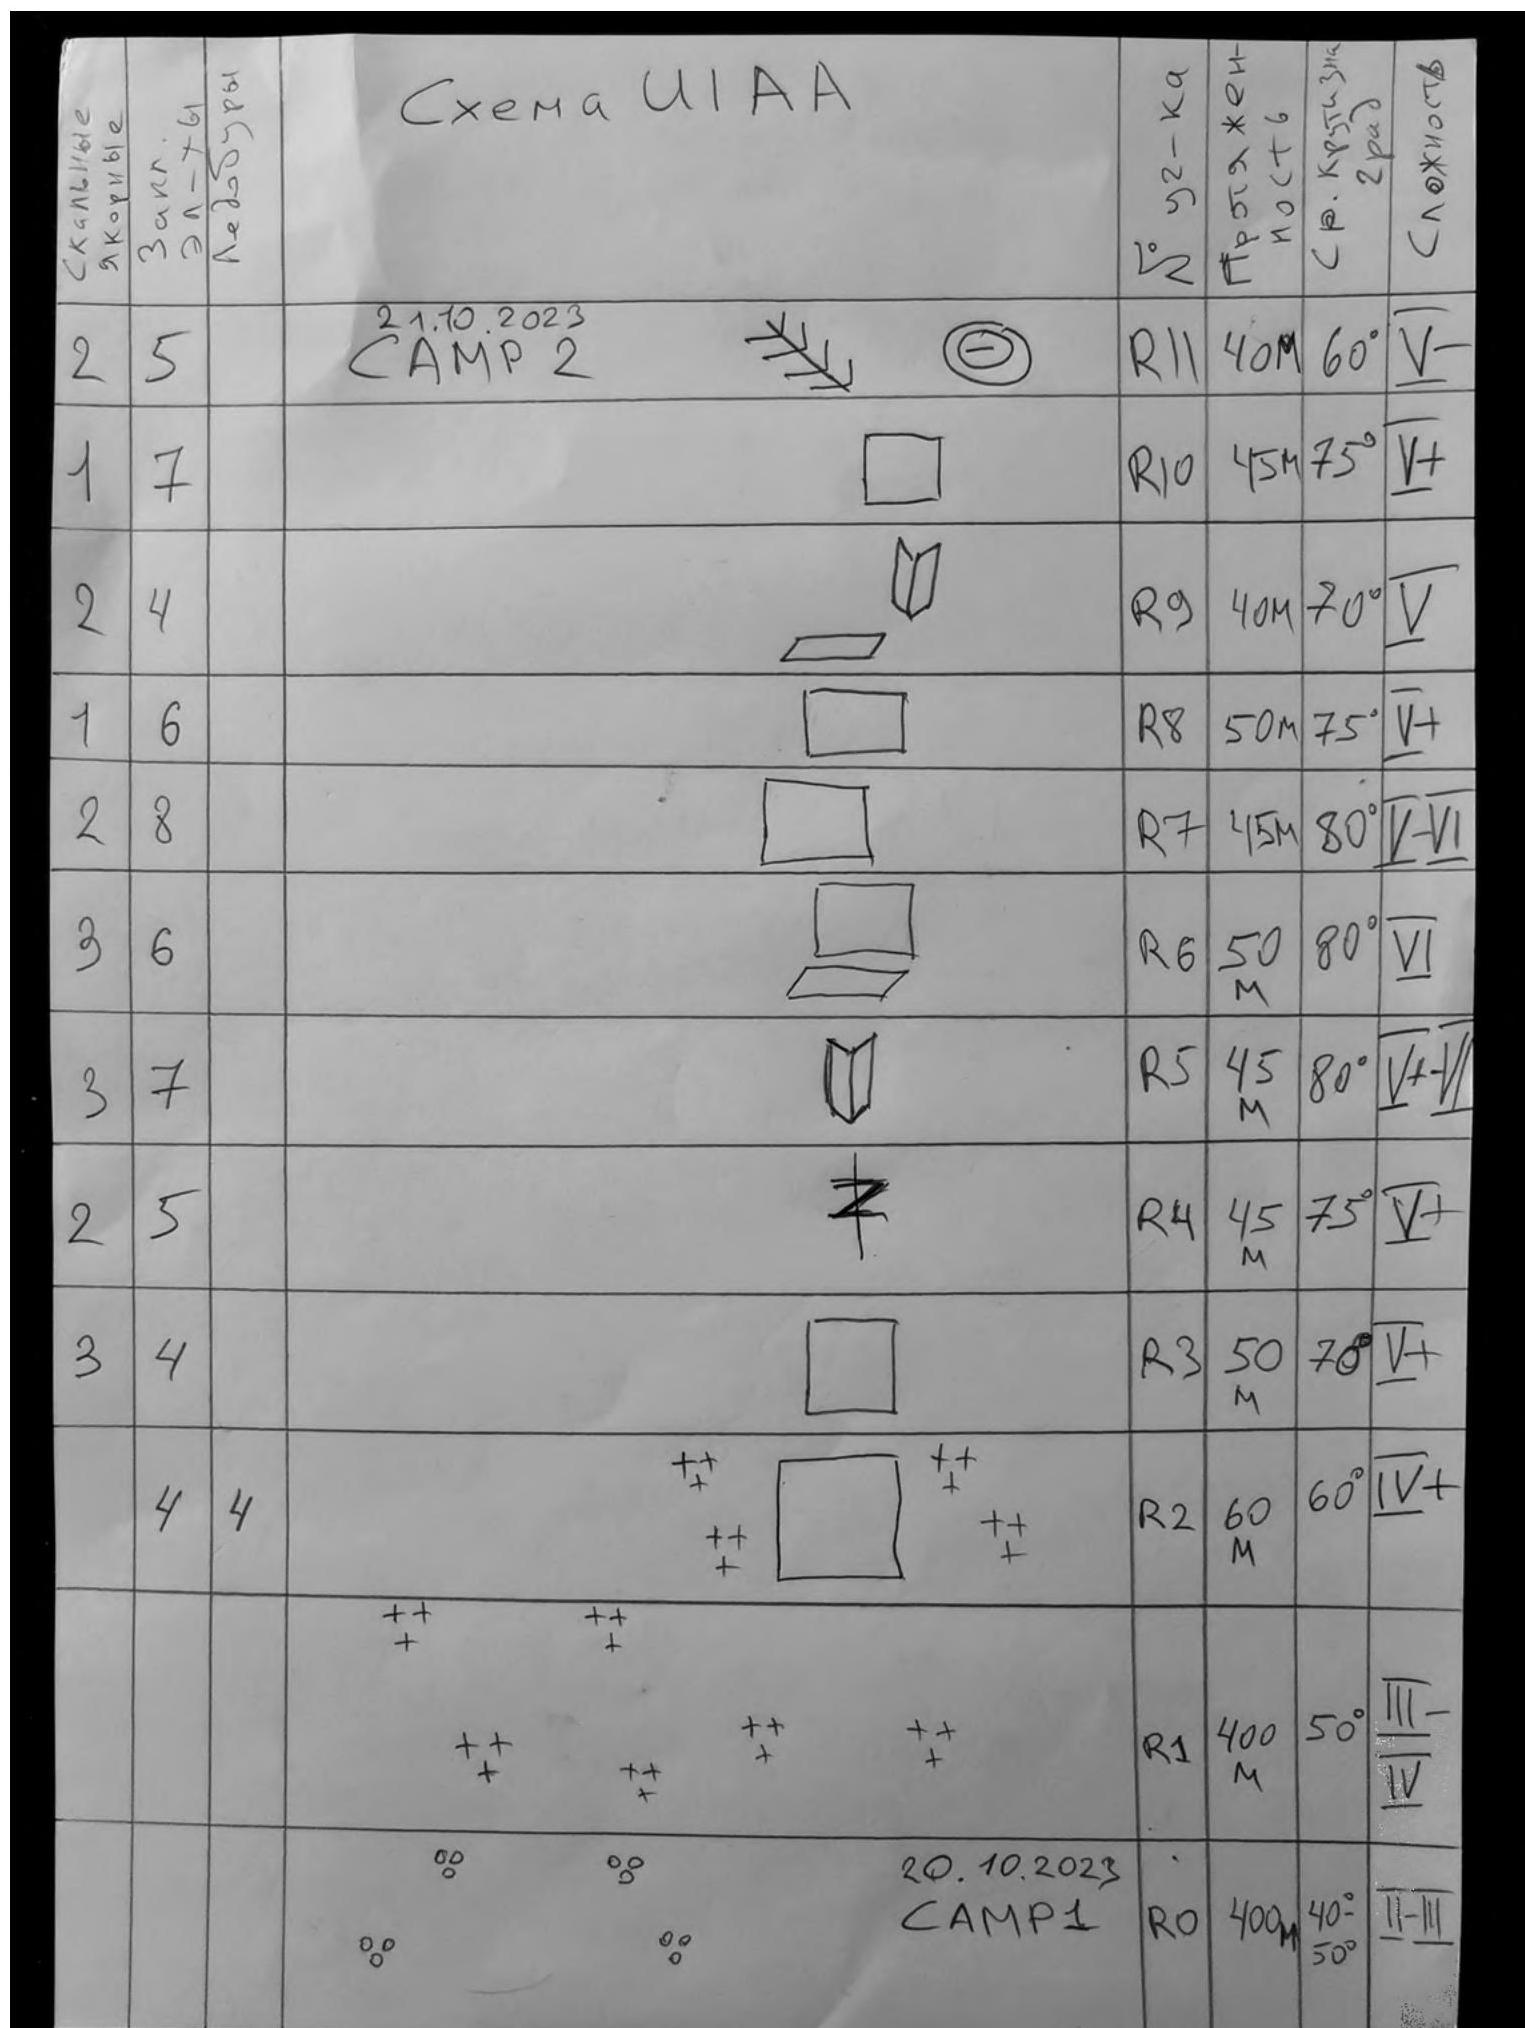 Скальные якорные
Закл. эл-ты
Ледобуры
Схема UIAA
№ уч-ка
Протяжен-
ность
Ср. крутизна
град
Сложность
2 5 21.10.2023
CAMP 2 R11 40м 60° V-
1 7 R10 45м 75° V+
2 4 R9 40м 70° V
1 6 R8 50м 75° V+
2 8 R7 45м 80° V-VI
3 6 R6 50 м 80° VI
3 7 R5 45 м 80° V+-VI
2 5 R4 45 м 75° V+
3 4 R3 50 м 70° V+
4 4 R2 60 м 60° IV+
R1 400 м 50° III-
IV
20.10.2023
CAMP1 R0 400м 40°-
50° II-III